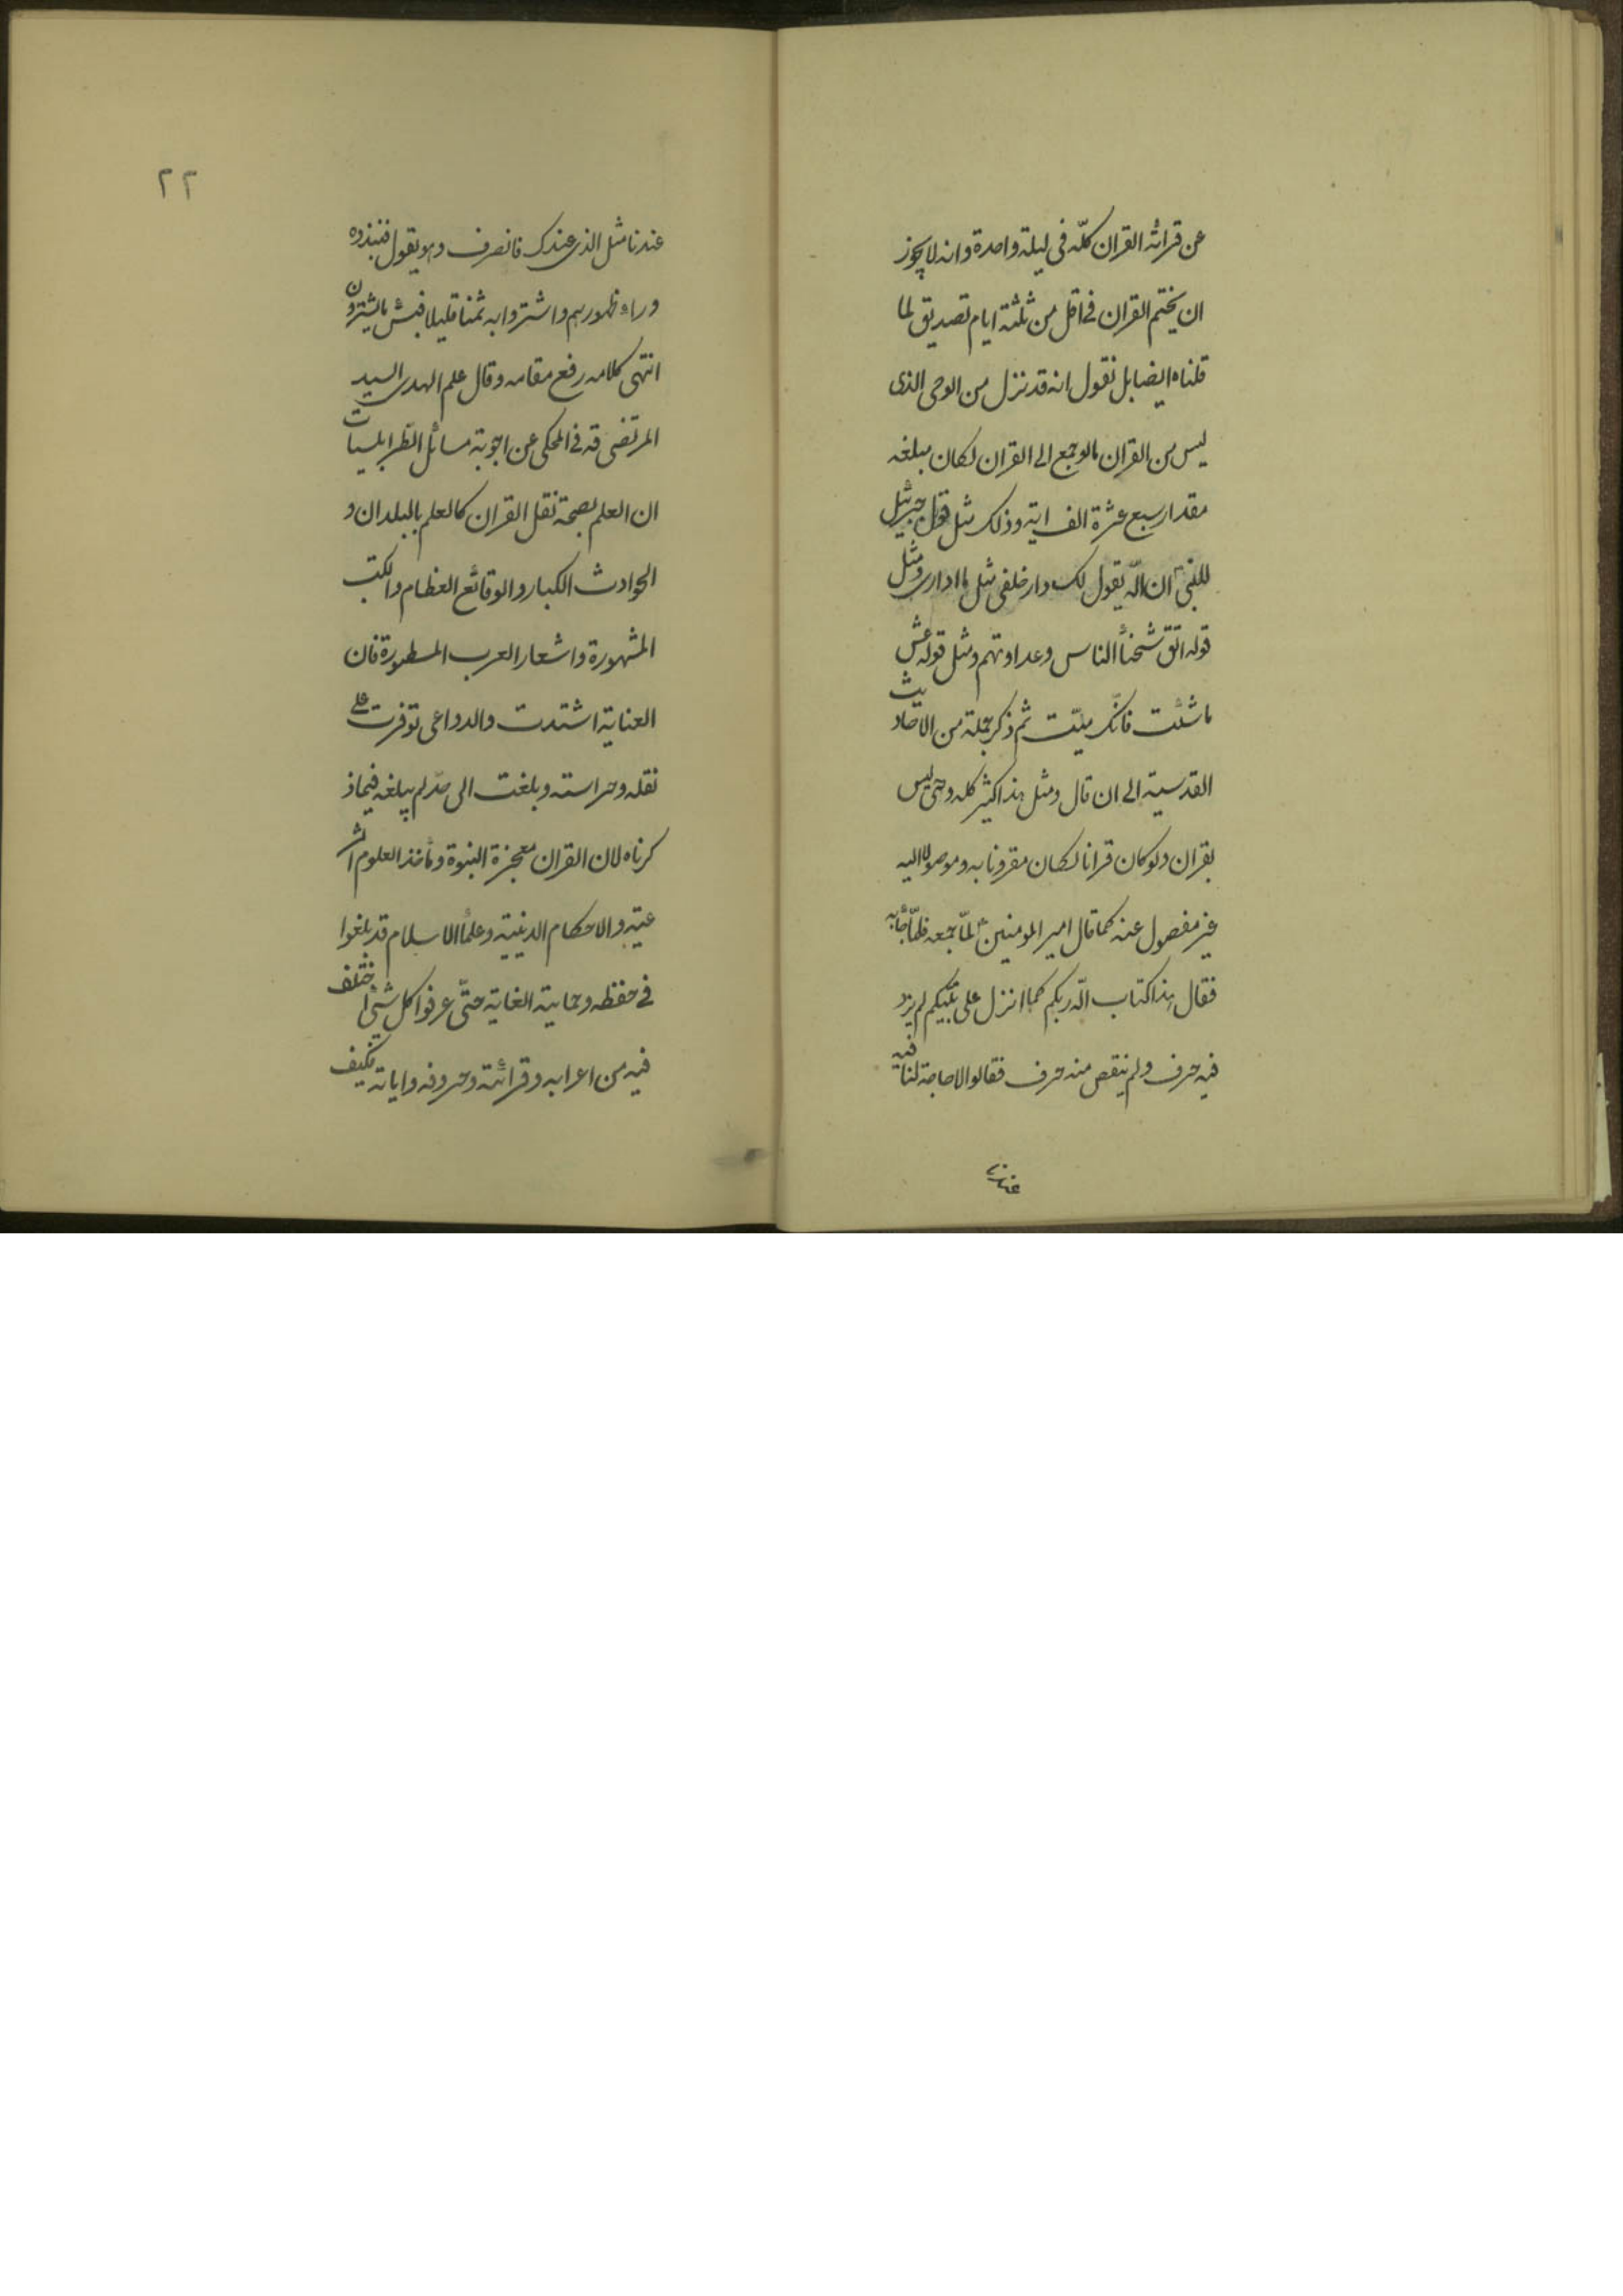 عن قرائة القران كلّه فى ليلة واحدة وانه لا يجوز
ان يختم القران فى اقل من ثلثة ايام تصديق لما
قلناه ايضا بل نقول انه قد نزل من الوحى الذى
ليس من القران ما لو جمع الى القران لكان مبلغه
مقدار سبع عشرة الف اية وذلك مثل قول جبرئيل
للنبى ان الله يقول لك دار خلقى مثل ما ادارى ومثل
قوله اتق شحناء الناس وعداوتهم ومثل قوله عش
ما شئت فانّك ميّت ثم ذكر جملة من الاحاديث
القدسية الى ان قال ومثل هذا كثير كله وحى ليس
بقران ولو كان قرانا لكان مقرونا به وموصولا اليه
غير مفصول عنه كما قال امير المومنين ع لمّا جمعه فلمّا جاء به
فقال هذا كتاب الله ربكم كما انزل على نبيكم لم يزد
فيه حرف ولم ينقص منه حرف فقالوا لا حاجة لنا فيه
عندنا
٢٢
عندنا مثل الذى عندك فانصرف وهو يقول فنبذوه
وراء ظهورهم واشتروا به ثمنا قليلا فبئس ما يشترون
انتهى كلامه رفع مقامه وقال علم الهدى السيد
المرتضى قه فى المحكى عن اجوبة مسائل الطرابلسيات
ان العلم بصحة نقل القران كالعلم بالبلدان و
الحوادث الكبار والوقائع العظام والكتب
المشهورة واشعار العرب المسطورة فان
العناية اشتدت والدواعى توفرت على
نقله وحراسته وبلغت الى حدّ لم يبلغه فيما ذ
كرناه لان القران معجزة النبوة ومأخذ العلوم الشر
عية والاحكام الدينية وعلماء الاسلام قد بلغوا
فى حفظه وحماية الغاية حتّى عرفوا كل شئ اختلف
فيه من اعرابه وقرائته وحروفه واياته فكيف